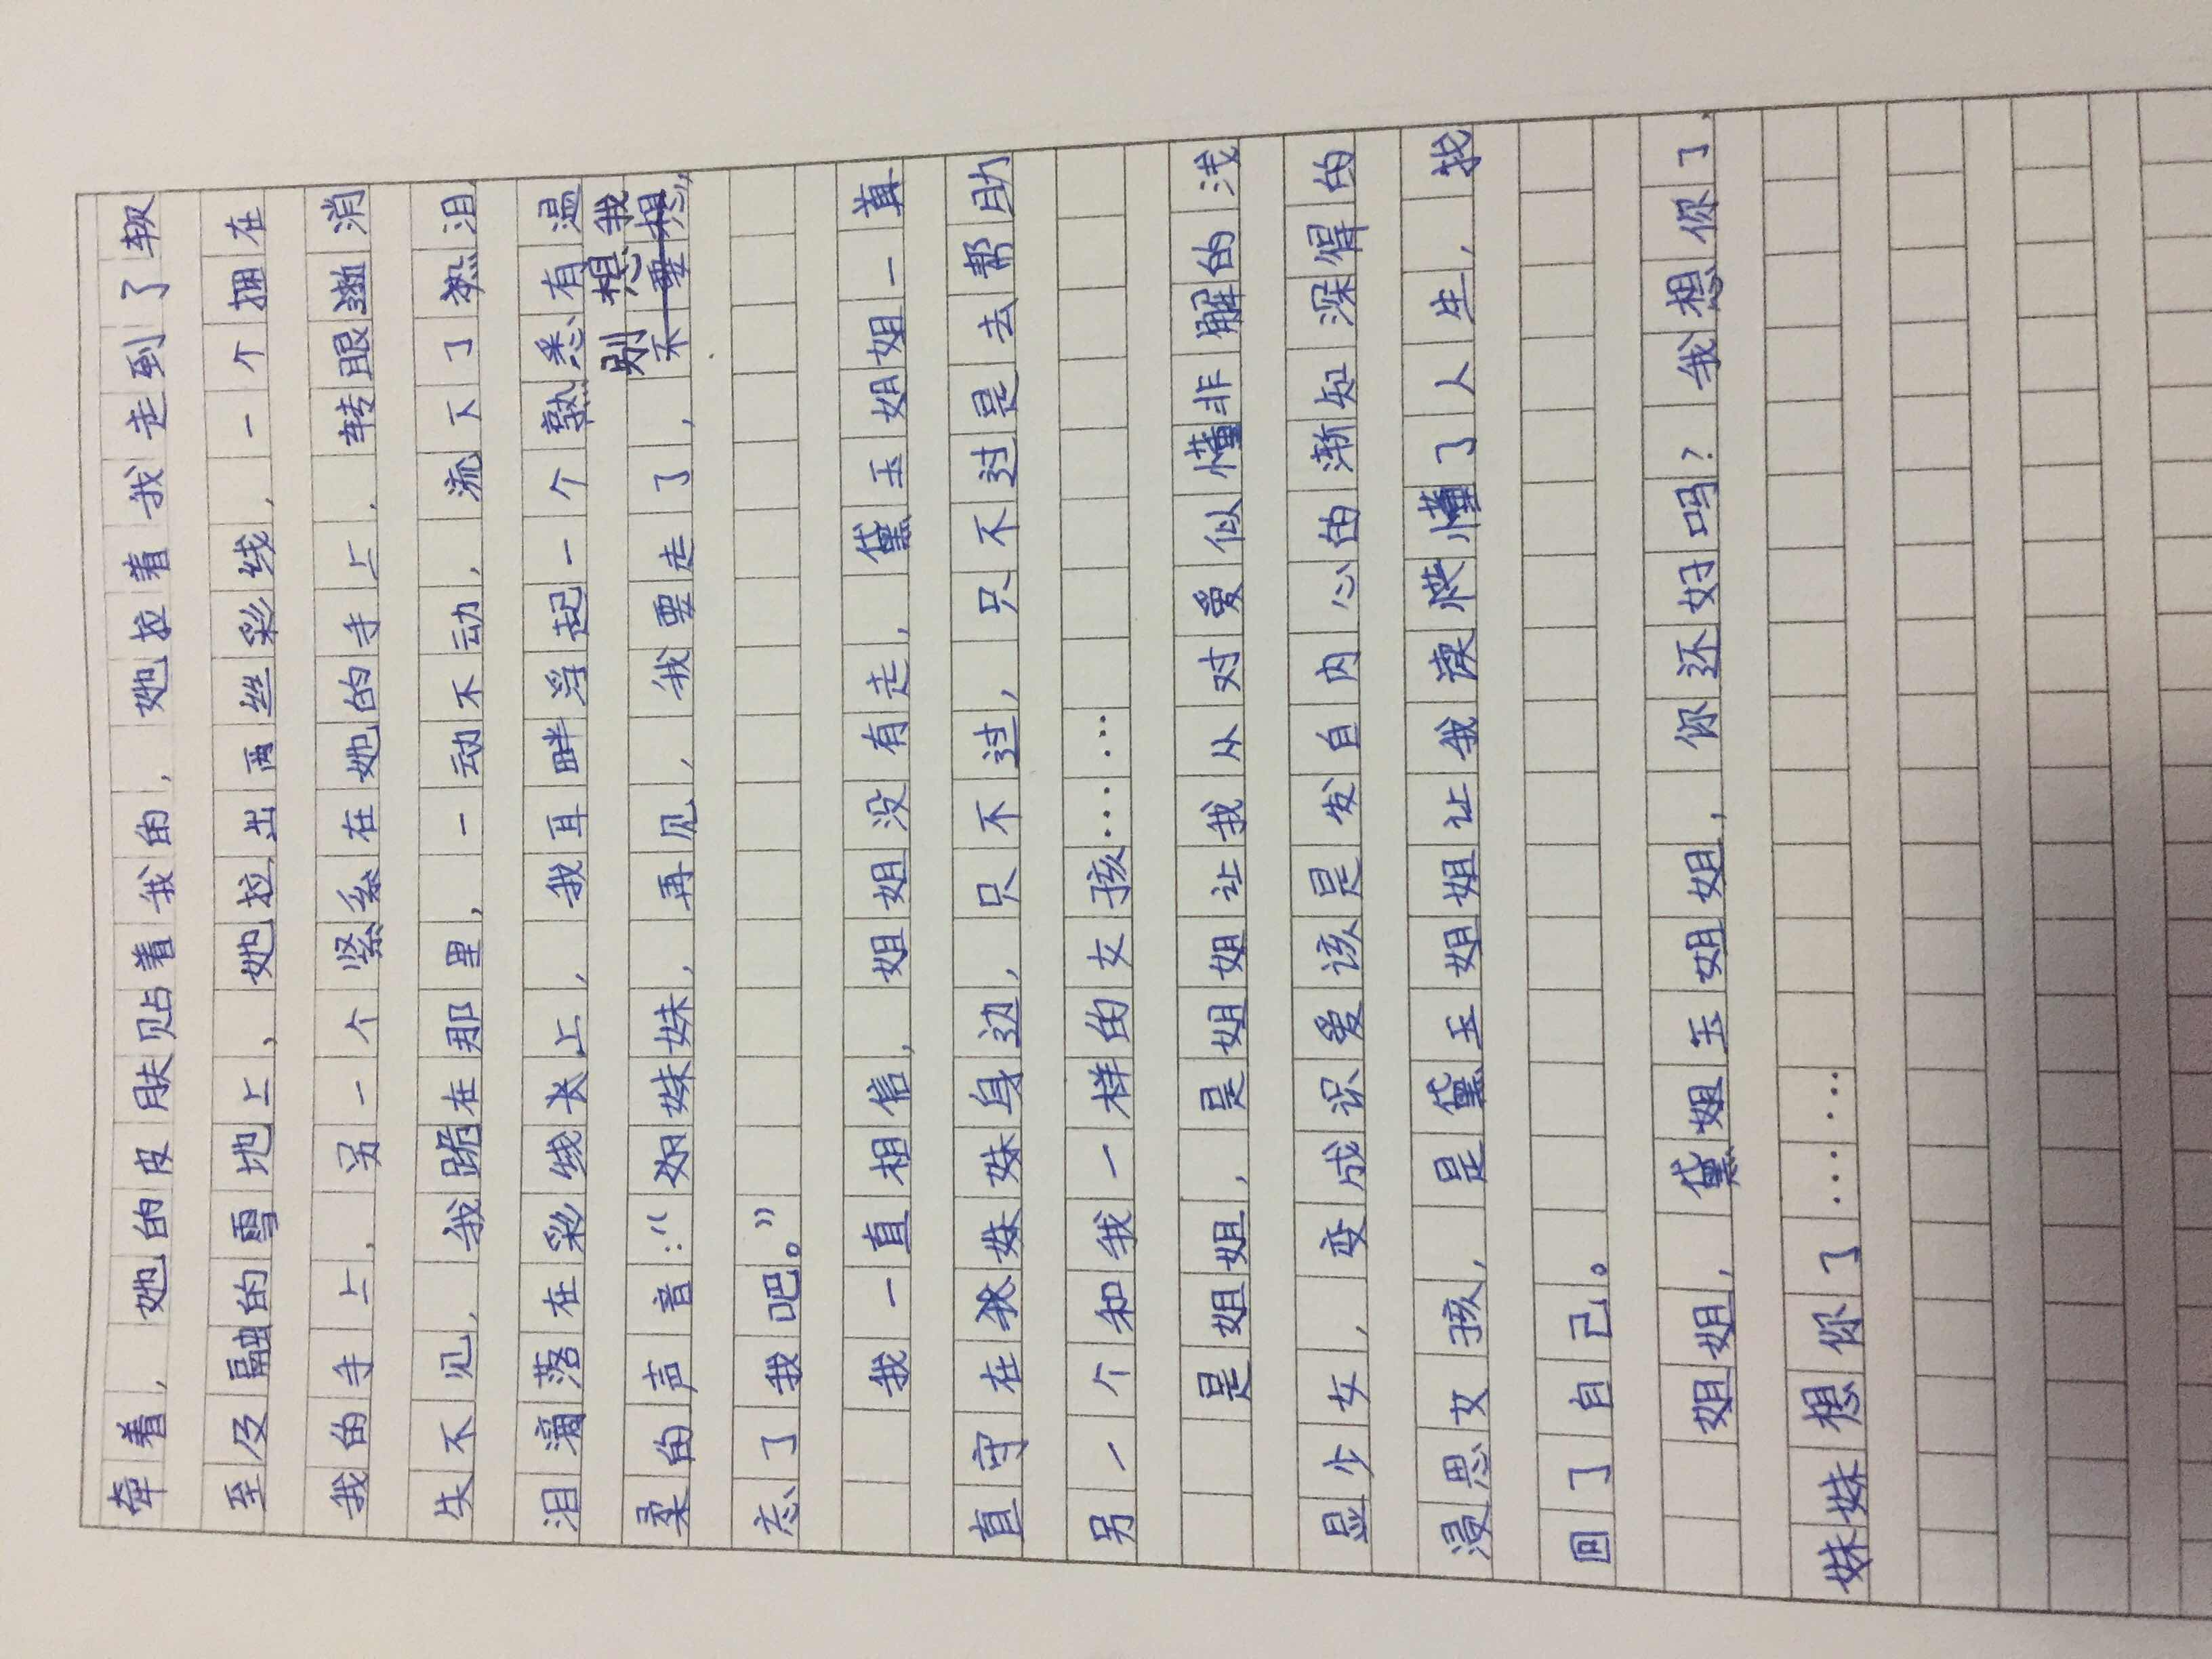 牵着，她的皮肤贴着我的，她拉着我走到了软
至及融的雪地上，她拉出两丝彩线，一个捆在
我的手上，另一个紧系在她的手上，转眼消
失不见，我跪在那里，一动不动，流下了热泪，
泪滴落在彩线长上，我耳畔浮起一个熟悉有温
别想我
柔的声音：“好妹妹，再见，我要走了，不要想，
忘了我吧。”
我一直相信，姐姐没有走，黛玉姐姐一直
直守在妹妹身边，只不过，只不过是去帮助
另一个和我一样的女孩……
是姐姐，是姐姐让我从对爱似懂非解的浅
显少女，变成识爱该是发自内心的渐知深得的
浸思女孩，是黛玉姐姐让我读懂了人生，找
回了自己。
姐姐，黛姐玉姐姐，你还好吗？我想你了，
妹妹想你了……